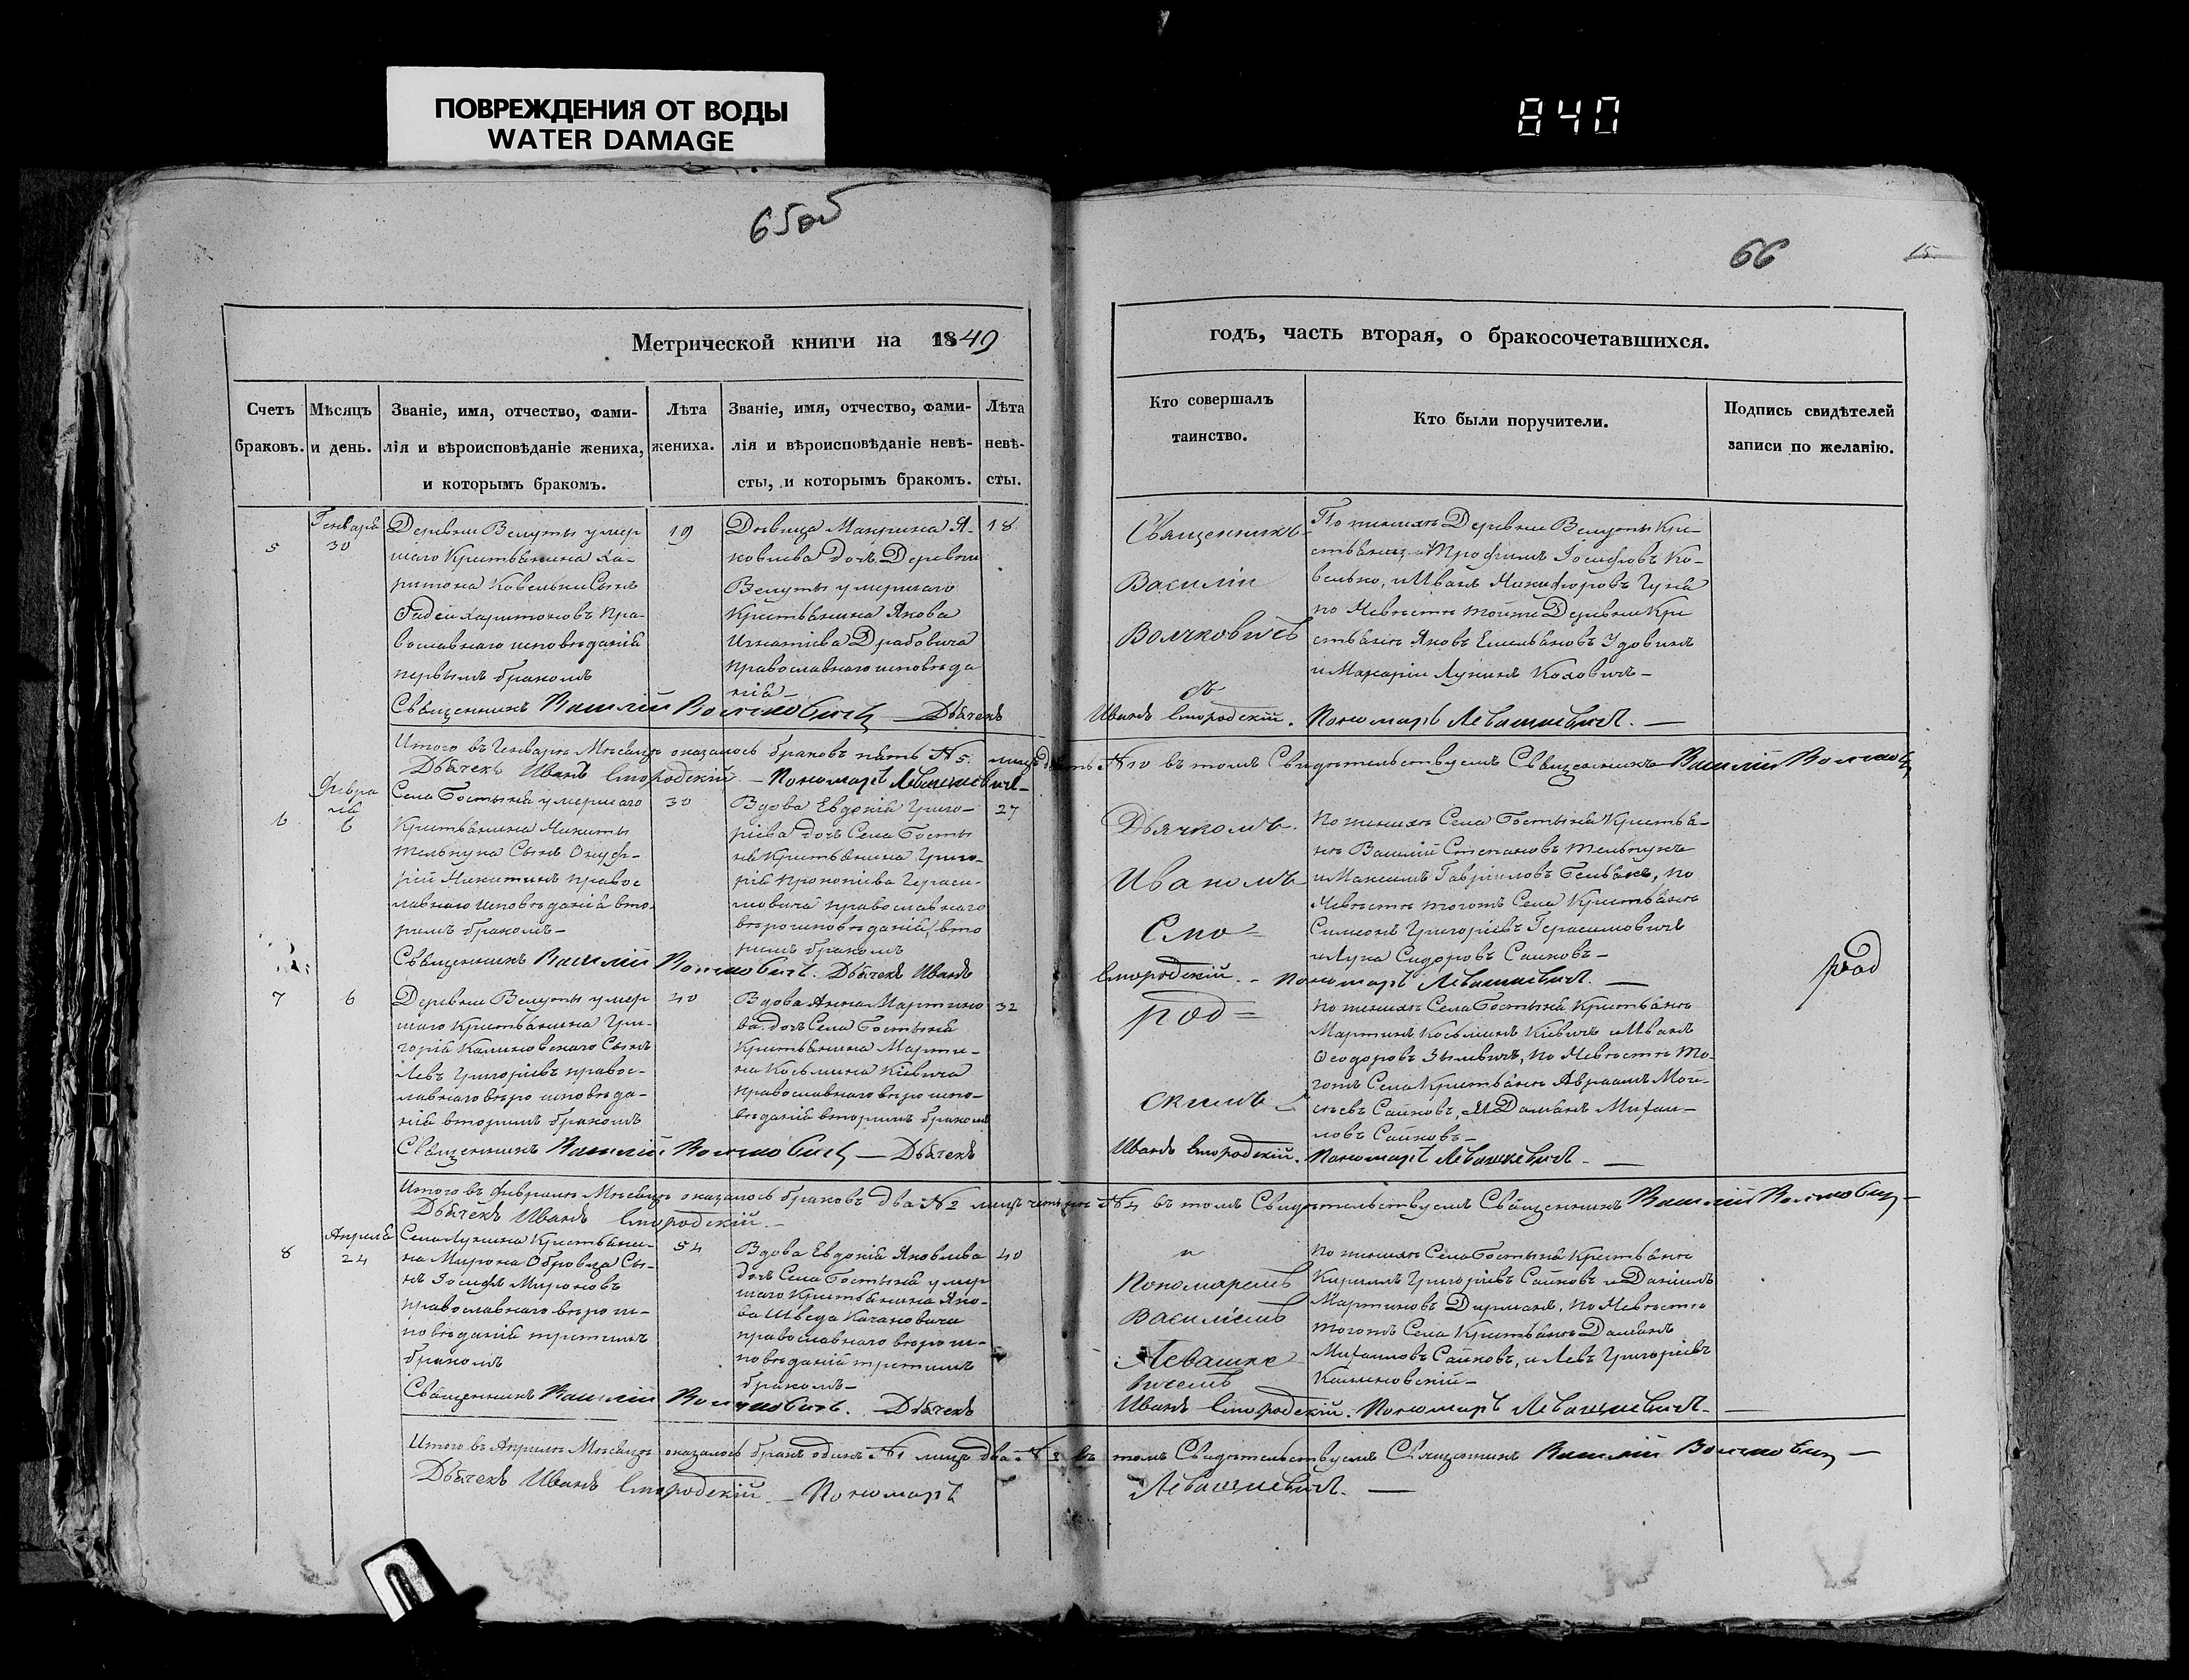 ПОВРЕЖДЕНИЯ ОТ ВОДЫ
WATER DAMAGE
840
65об
66
15
Метрической книги на 1849
годъ, часть вторая, о бракосочетавшихся.
Счетъ браковъ.
Мѣсяцъ и день.
Званіе, имя, отчество, фами-
лія и вѣроисповѣданіе жениха,
и которымъ бракомъ.
Лѣта жениха.
Званіе, имя, отчество, фами-
лія и вѣроисповѣданіе невѣ-
сты, и которымъ бракомъ.
Лѣта невѣ-
сты.
Кто совершалъ
таинство.
Кто были поручители.
Подпись свидѣтелей
записи по желанію.
5
Генваря
30
Деревни Велуты умер
шаго Крестьянина Ха-
ритона Ковельки Сынъ
Фадей Харитоновъ Пра-
вославнаго исповѣданія
первымъ бракомъ
19
Дѣвица Макрина Я-
ковлева дочь Деревни
Велуты умершаго
Крестьянина Якова
Игнатіева Драбовича
православнаго исповѣда
нія
18
Священникъ
Василій
Волчковичъ
съ
По женихѣ Деревни Велуты Кре-
стьяне Трофимъ Іосифовъ Ко-
велько, и Иванъ Никифоровъ
по Невѣстѣ тойже Деревни Кре
стьяне Яковъ Емельяновъ
и Макарій Лукинъ
Священникъ Василій Волчковичъ — Дьячекъ
Иванъ Смородскій. Пономарь Левашкевичъ. —
Итого въ Генварѣ Мѣсяцѣ оказалось браковъ пять №5. лицъ десять №10 въ томъ Свидѣтельствуемъ Священникъ Василій Волчковичъ
Дьячекъ Иванъ Смородскій — Пономарь Левашкевичъ —
6
Февра
ля
6
Села Гостыня умершаго
Крестьянина Никиты
Тельпука Сынъ Онуф-
рій Никитинъ правос
лавнаго исповѣданія вто-
рымъ бракомъ —
30
Вдова Евдокія Григо-
ріева дочь Села Госты
ня Крестьянина Григо-
рія Прокопіева Гераси-
мовича православнаго
вѣроисповѣданія, вто
рымъ бракомъ
27
Дьячкомъ
Иваномъ
Смо=
По женихѣ Села Гостыня Крестья-
не Василій Степановъ Тельпукъ
и Максимъ Гавріиловъ, по
Невѣстѣ тогожъ Села Крестьяне
Симеонъ Григоріевъ Герасимовичъ
и Лука Сидоровъ Саиковъ —
Священникъ Василій Волчковичъ. Дьячекъ Иванъ
Смородскій. — Пономарь Левашкевичъ. —
род
7
6
Деревни Велуты умер
шаго Крестьянина Гри-
горія Калиновскаго Сынъ
Левъ Григоріевъ правос-
лавнаго вѣроисповѣда-
нія вторымъ бракомъ
40
Вдова Анна Мартино
ва дочь Села Гостыня
Крестьянина Марти-
на Косьмина Кіевича
православнаго вѣроиспо-
вѣданія вторымъ бракомъ
32
род=
скимъ
По женихѣ Села Гостыня Крестьяне
Мартинъ Косьминъ Кіевичъ и Иванъ
Ѳеодоровъ, по Невѣстѣ То-
гожъ Села Крестьяне Авраамъ Мой-
сѣевъ Саиковъ, и Даміанъ Михаи-
ловъ Саиковъ —
Священникъ Василій Волчковичъ — Дьячекъ
Иванъ Смородскій. Пономарь Левашкевичъ. —
Итого въ Февралѣ Мѣсяцѣ оказалось браковъ два №2 лицъ четыре №4 въ томъ Свидѣтельствуемъ Священникъ Василій Волчковичъ —
Дьячекъ Иванъ Смородскій. —
8
Апреля
24
Села Лунина Крестьяни-
на Мирона Сы-
нъ Іосифъ Мироновъ
православнаго вѣрои-
повѣданія третимъ
бракомъ
54
Вдова Евдокія Яковлева
дочь Села Гостыня умер
шаго Крестьянина Яко-
ва Шведа Качановича
православнаго вѣрои-
повѣданія третимъ
бракомъ —
40
и
Пономаремъ
Василіемъ
Левашке
вичемъ
По женихѣ Села Гостыня Крестьяне
Кирилъ Григоріевъ Саиковъ и Даніилъ
Мартиновъ Дирманъ, по Невѣстѣ
тогожъ Села Крестьяне Даміанъ
Михаиловъ Саиковъ, и Левъ Григоріевъ
Калиновскій —
Священникъ Василій Волчковичъ. Дьячекъ
Иванъ Смородскій. Пономарь Левашкевичъ. —
Итого въ Апрелѣ Мѣсяцѣ оказалось бракъ одинъ №1 лицъ два №2 въ томъ Свидѣтельствуемъ Священникъ Василій Волчковичъ —
Дьячекъ Иванъ Смородскій — Пономарь
Левашкевичъ. —